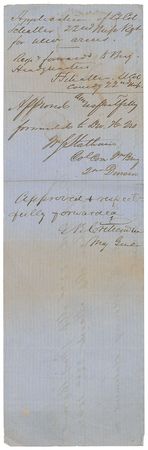 Application of Lt Col
Schaller 22nd Miss Regt
for new arms
Resp forward to Brig
Head Quarters
F Schaller Lt Col
Comdg 22nd Miss
Approved & respectfully
forwarded to Div. Hd Qrs
Col Com 
2n Division
Approved & respect-
fully forwarded
G B Crittenden
Maj Genl